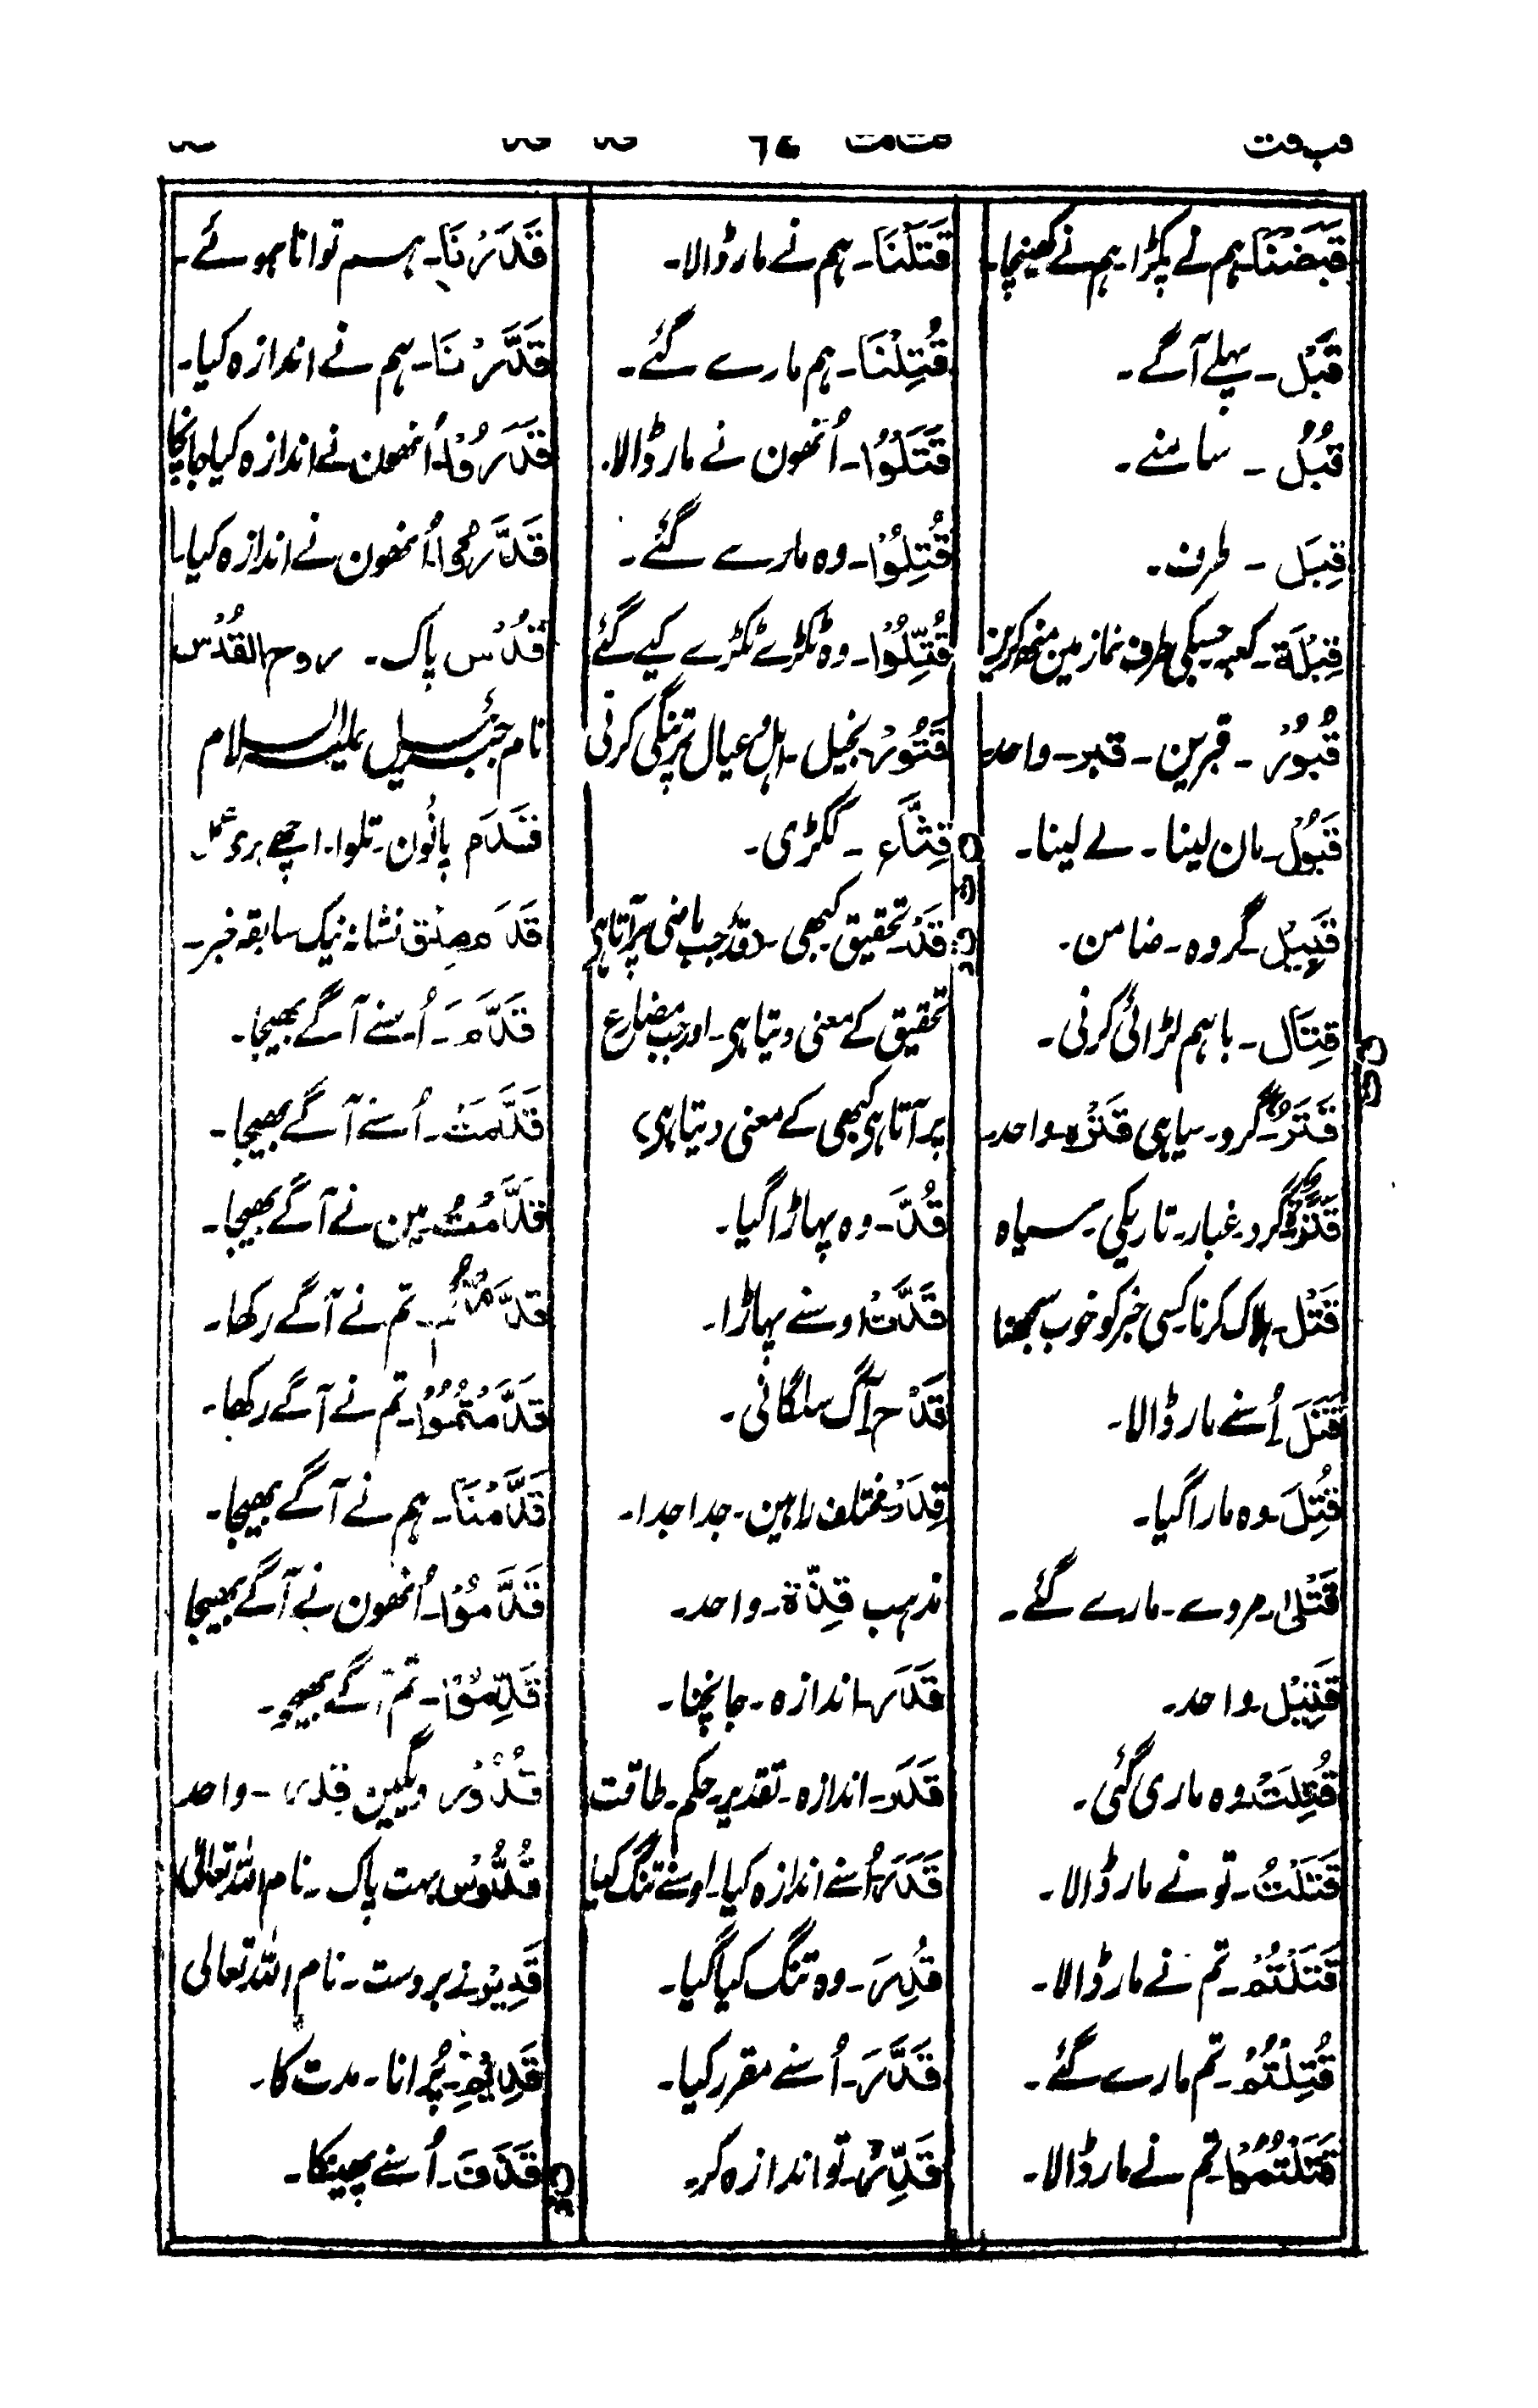 قب قت
قَبَضْنَا۔ہم نے پکڑا۔ہم نے کھینچا۔
قَبْلَ۔پہلے آگے۔
قُبُلُ ۔ سامنے۔
قِبَل ۔ طرف۔
قِبْلَة۔کعبہ جسکی طرف نماز مین منھ کرین
قُبُوْر ۔ قبرین۔ قبر۔واحد۔
قَبُوْل۔مان لینا۔ لے لینا۔
قَبِیْل۔گروہ۔ضامن۔
قِتَال۔باہم لڑائی کرنی۔
قَتَر۔گرد۔سیاہی قَتَرَہ۔واحد۔
قَتَرَة۔گرد۔غبار۔تاریکی۔سیاہ
قَتْل۔ہلاک کرنا۔کسی خبر کو خوب سمجھنا
قَتَلَ اُسنے مار ڈالا۔
قُتِلَ۔وہ مارا گیا۔
قَتْلیٰ۔مردے۔مارے گئے۔
قَتِیْل۔واحد۔
قُتِلَتْ۔وہ ماری گئی۔
قَتَلْتُ۔تو نے مار ڈالا۔
قَتَلْتُمْ۔تم نے مار ڈالا۔
قُتِلْتُمْ۔تم مارے گئے۔
قَتَلْتُمُوْا۔تم نے مار ڈالا۔
قَتَلْنَا۔ہم نے مار ڈالا۔
قُتِلْنَا۔ہم مارے گئے۔
قَتَلُوْا۔اُنھون نے مار ڈالا۔
قُتِلُوْا۔وہ مارے گئے۔
قُتِّلُوْا۔وہ ٹکڑے ٹکڑے کیے گئے
قَتُوْر۔بخیل۔اہل و عیال پر تنگی کرنی
قِثَّاء ۔ ککڑی۔
قَدْ۔تحقیق۔کبھی۔(قد جب ماضی پر آتا ہی
تحقیق کے معنی دیتا ہی۔اور جب مضارع
پر آتا ہی کبھی کے معنی دیتا ہی)
قُدَّ۔وہ پھاڑا گیا۔
قَدَّتْ اوسنے پھاڑا۔
قَدْح آگ سلگانی۔
قِدَد۔مختلف راہین۔جدا جدا۔
مذہب قِدَّة۔واحد۔
قَدَر۔اندازہ۔جانچنا۔
قَدَر۔اندازہ۔تقدیر۔حکم۔طاقت
قَدَرَ۔اُسنے اندازہ کیا۔اوسنے تنگ کیا
قُدِرَ۔وہ تنگ کیا گیا۔
قَدَّرَ۔اُسنے مقرر کیا۔
قَدِّرْ۔تو اندازہ کر۔
قَدَرْنَا۔ہم توانا ہوئے۔
قَدَّرْنَا۔ہم نے اندازہ کیا۔
قَدَرُوْا۔اُنھون نے اندازہ کیا جانچا
قَدَّرُوْا۔اُنھون نے اندازہ کیا۔
قُدُس پاک۔ روح القُدُس
نام جبرئیل علیہ السلام
قَدَم پانُون۔تلوا۔اچھے برے عمل
قَدَمَ صِدْق نشانہ نیک سابقہ خبر۔
قَدَّمَ۔اُسنے آگے بھیجا۔
قَدَّمَتْ۔اُسنے آگے بھیجا۔
قَدَّمْتُ۔مین نے آگے بھیجا۔
قَدَّمْتُمْ۔تم نے آگے رکھا۔
قَدَّمْتُمُوْا۔تم نے آگے رکھا۔
قَدَّمْنَا۔ہم نے آگے بھیجا۔
قَدَّمُوْا۔اُنھون نے آگے بھیجا
قَدِّمُوْا۔تم آگے بھیجو۔
قُدُوْر دیگین قِدر۔واحد
قُدُّوْس۔بہت پاک۔نام اللہ تعالیٰ
قَدِیْر زبردست۔نام اللہ تعالی
قَدِیْم۔پُرانا۔مدت کا۔
قَذَفَ۔اُسنے پھینکا۔